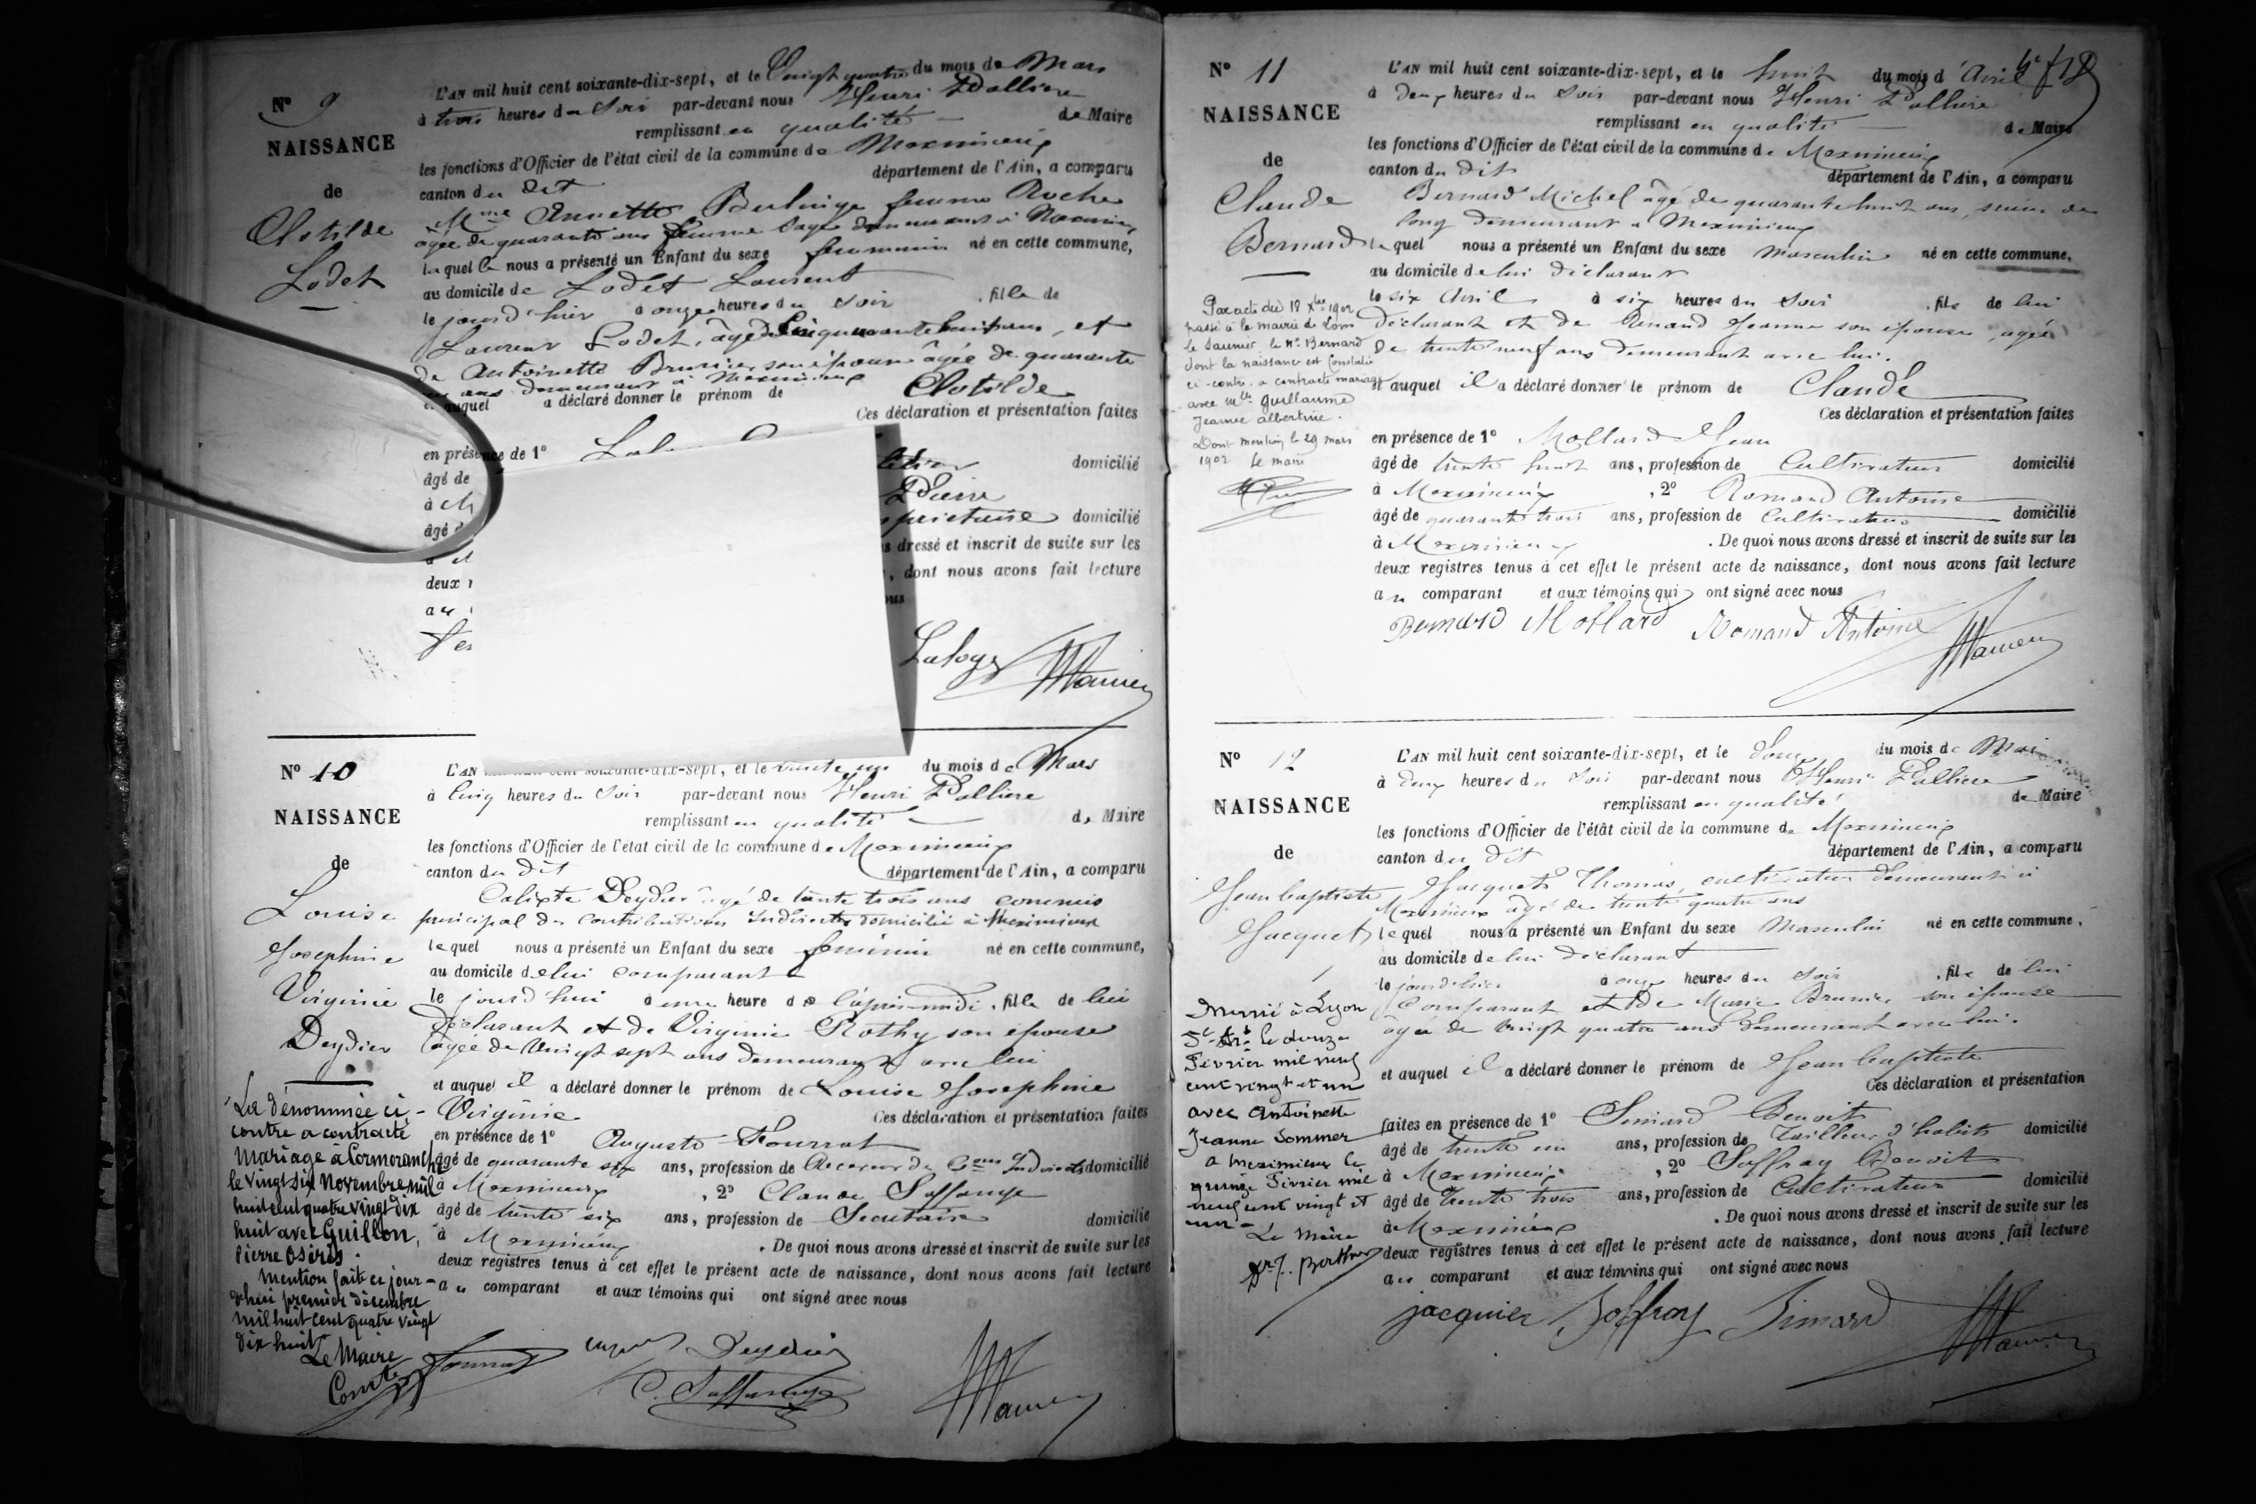 N° 9
NAISSANCE
de
Clotilde
Lodet
L'AN mil huit cent soixante-dix-sept, et le Vingt quatre du mois de Mars
à trois heures du Soir par-devant nous Henri Pallière
remplissant en qualité de Maire
les fonctions d'Officier de l'état civil de la commune de Meximieux
canton du dit département de l'Ain, a comparu
Mme Annette Berlinge femme Roche
agée de quarante ans femme Sage demeurant à Meximieux
laquelle nous a présenté un Enfant du sexe feminin né en cette commune,
au domicile de Lodet Laurent
le jourd'hier à onze heures du Soir , fille de
Laurent Lodet, âgé de Cinquante huit ans, et
de Antoinette Brunier son épouse âgée de quarante
ans demeurant à Meximieux
auquel a déclaré donner le prénom de Clotilde
Ces déclaration et présentation faites
en présence de 1°
âgé de domicilié
à Pierre
âgé d priétaire domicilié
s dressé et inscrit de suite sur les
deux r , dont nous avons fait lecture
au ous
Laloge
N° 10
NAISSANCE
de
Louise
Josephine
Virginie
Deydier
La dénommée ci-
contre a contracté
Mariage à Cormoranche
le vingt six novembre mil
huit cent quatre vingt dix
huit avec Guillon,
Pierre Osiris.
Mention fait ce jour-
d'hui premier décembre
mil huit cent quatre vingt
dix huit
Le Maire
Comte
L'AN mil huit cent soixante-dix-sept, et le trente un du mois de Mars
à Cinq heures du Soir par-devant nous Henri Pallière
remplissant en qualité de Maire
les fonctions d'Officier de l'état civil de la commune de Meximieux
canton du dit département de l'Ain, a comparu
Calixte Deydier âgé de trente trois ans commis
principal des Contributions Indirectes domicilié à Meximieux
lequel nous a présenté un Enfant du sexe féminin né en cette commune,
au domicile de lui comparant
le jourd'hui à une heure de l'après-midi , fille de lui
déclarant et de Virginie Rothy son épouse
âgée de Vingt sept ans demeurant avec lui
et auquel il a déclaré donner le prénom de Louise Josephine
Virginie Ces déclaration et présentation faites
en présence de 1° Auguste Fourrat
âgé de quarante six ans, profession de Receveur des Cons Indirectes domicilié
à Meximieux , 2° Claude Saffange
âgé de trente six ans, profession de Secrétaire domicilié
à Meximieux . De quoi nous avons dressé et inscrit de suite sur les
deux registres tenus à cet effet le présent acte de naissance, dont nous avons fait lecture
au comparant et aux témoins qui ont signé avec nous
Deydier
N° 11
NAISSANCE
de
Claude
Bernard
Par acte du 18 Xbre 1901
passé à la mairie de Lons
le Saunier le Sr Bernard
dont la naissance est Constatée
ci-contre a contracté mariage
avec Mlle Guillaume
Jeanne albertine.
Dont mention le 29 mars
1902 Le maire
L'AN mil huit cent soixante-dix-sept, et le huit du mois d'Avril
à Deux heures du Soir par-devant nous Henri Pallière
remplissant en qualité de Maire
les fonctions d'Officier de l'état civil de la commune de Meximieux
canton du dit département de l'Ain, a comparu
Bernard Michel âgé de quarante huit ans, scieur de
long demeurant à Meximieux
lequel nous a présenté un Enfant du sexe Masculin né en cette commune,
au domicile de lui déclarant
le six Avril à six heures du Soir , fils de lui
déclarant et de Renand Jeanne son épouse, agée
de trente neuf ans demeurant avec lui.
et auquel il a déclaré donner le prénom de Claude
Ces déclaration et présentation faites
en présence de 1° Mollard Jean
âgé de trente huit ans, profession de Cultivateur domicilié
à Meximieux , 2° Romand Antoine
âgé de quarante trois ans, profession de Cultivateur domicilié
à Meximieux . De quoi nous avons dressé et inscrit de suite sur les
deux registres tenus à cet effet le présent acte de naissance, dont nous avons fait lecture
au comparant et aux témoins qui ont signé avec nous
Bernard Mollard Romand Antoine
N° 12
NAISSANCE
de
Jean baptiste
Jacquet
Marié à Lyon
5e Art le douze
Février mil neuf
cent vingt et un
avec Antoinette
Jeanne Sommer
à Meximieux le
quinze Février mil
neuf cent vingt et
un-
Le Maire
L'AN mil huit cent soixante-dix-sept, et le douze du mois de Mai
à Deux heures du Soir par-devant nous Henri Pallière
remplissant en qualité de Maire
les fonctions d'Officier de l'état civil de la commune de Meximieux
canton du dit département de l'Ain, a comparu
Jacquet Thomas, cultivateur demeurant à
Meximieux âgé de trente quatre ans
lequel nous a présenté un Enfant du sexe Masculin né en cette commune,
au domicile de lui déclarant
le jourd'hier à onze heures du Soir , fils de lui
Comparant et de Marie Brunier son épouse
âgée de Vingt quatre ans demeurant avec lui.
et auquel il a déclaré donner le prénom de Jean baptiste
Ces déclaration et présentation
faites en présence de 1° Simard Benoit
âgé de trente un ans, profession de Tailleur d'habits domicilié
à Meximieux , 2° Soffray Benoit
âgé de Trente trois ans, profession de Cultivateur domicilié
à Meximieux . De quoi nous avons dressé et inscrit de suite sur les
deux registres tenus à cet effet le présent acte de naissance, dont nous avons fait lecture
au comparant et aux témoins qui ont signé avec nous
jacquier Joffroy Simard